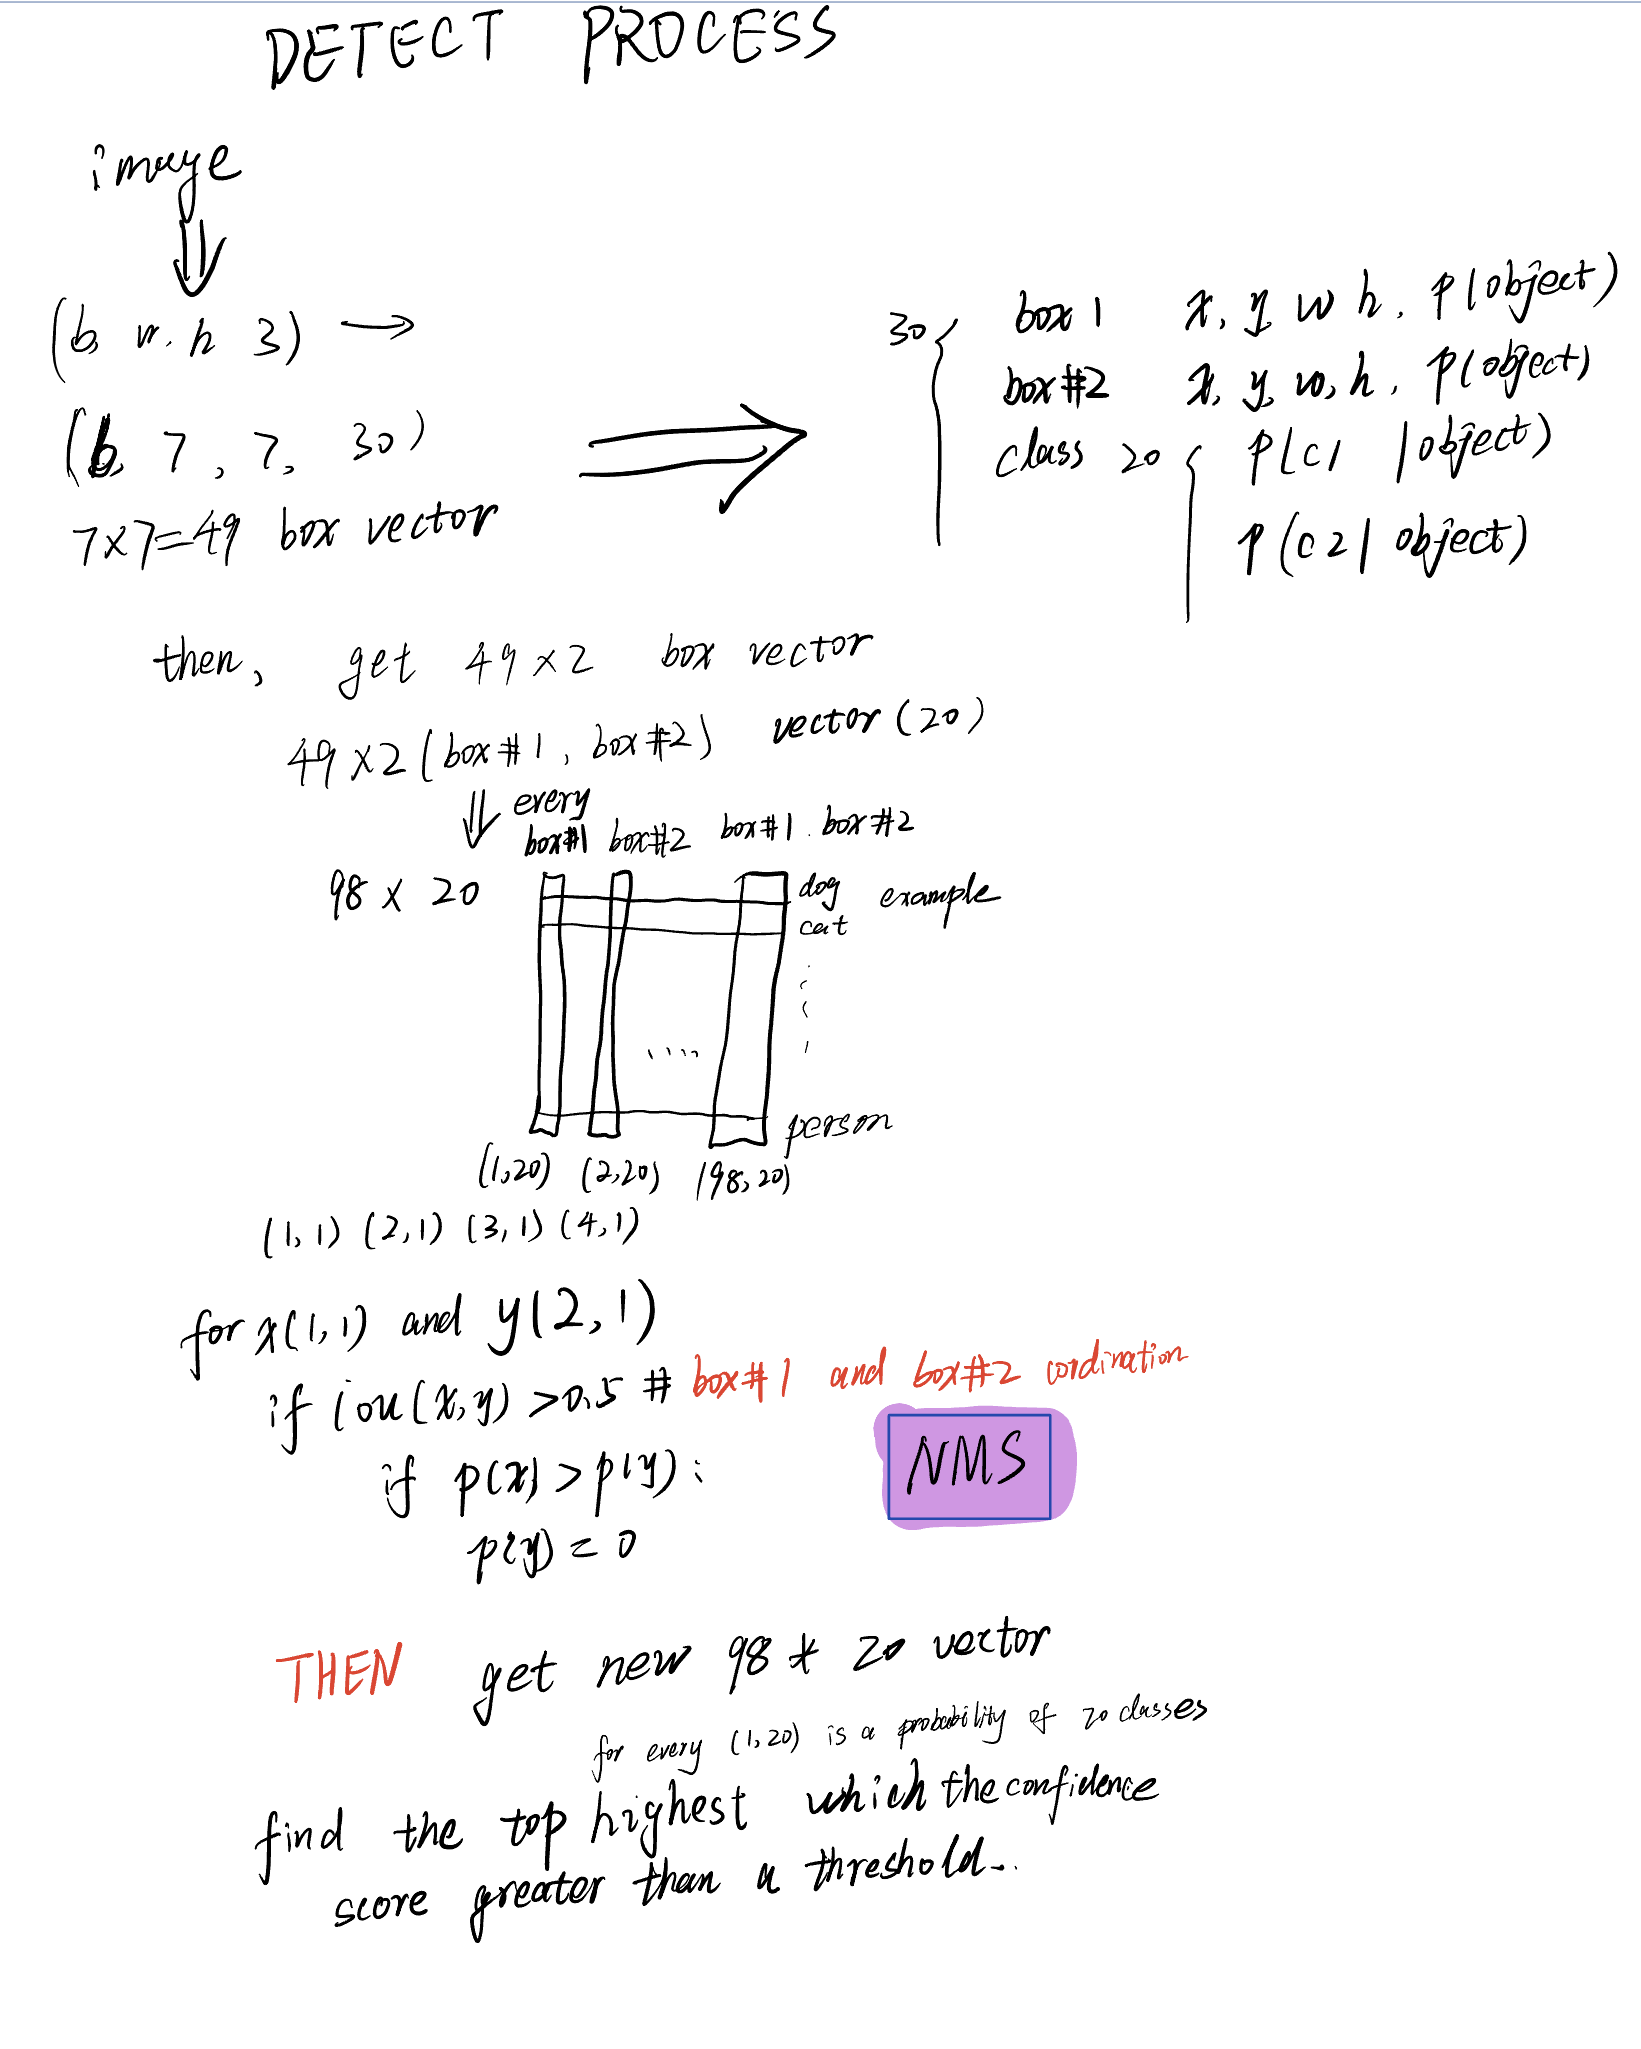 DETECT PROCESS
image
(b, w, h 3) →
(b, 7, 7, 30)
7×7=49 box vector
30 { box 1 x, y, w h, p(object)
box#2 x, y, w, h, p(object)
class 20 { p(c1 | object)
p(c2 | object)
then, get 49×2 box vector
49×2 (box#1, box#2) vector(20)
every
box#1 box#2 box#1 . box#2
98 × 20
dog example
cat
....
person
(1,20) (2,20) (98,20)
(1,1) (2,1) (3,1) (4,1)
for x(1,1) and y(2,1)
if iou(x,y) >0.5 # box#1 and box#2 cordination
if p(x) > p(y) :
NMS
p(y) = 0
THEN get new 98 * 20 vector
for every (1,20) is a probability of 20 classes
find the top highest which the confidence
score greater than a threshold..